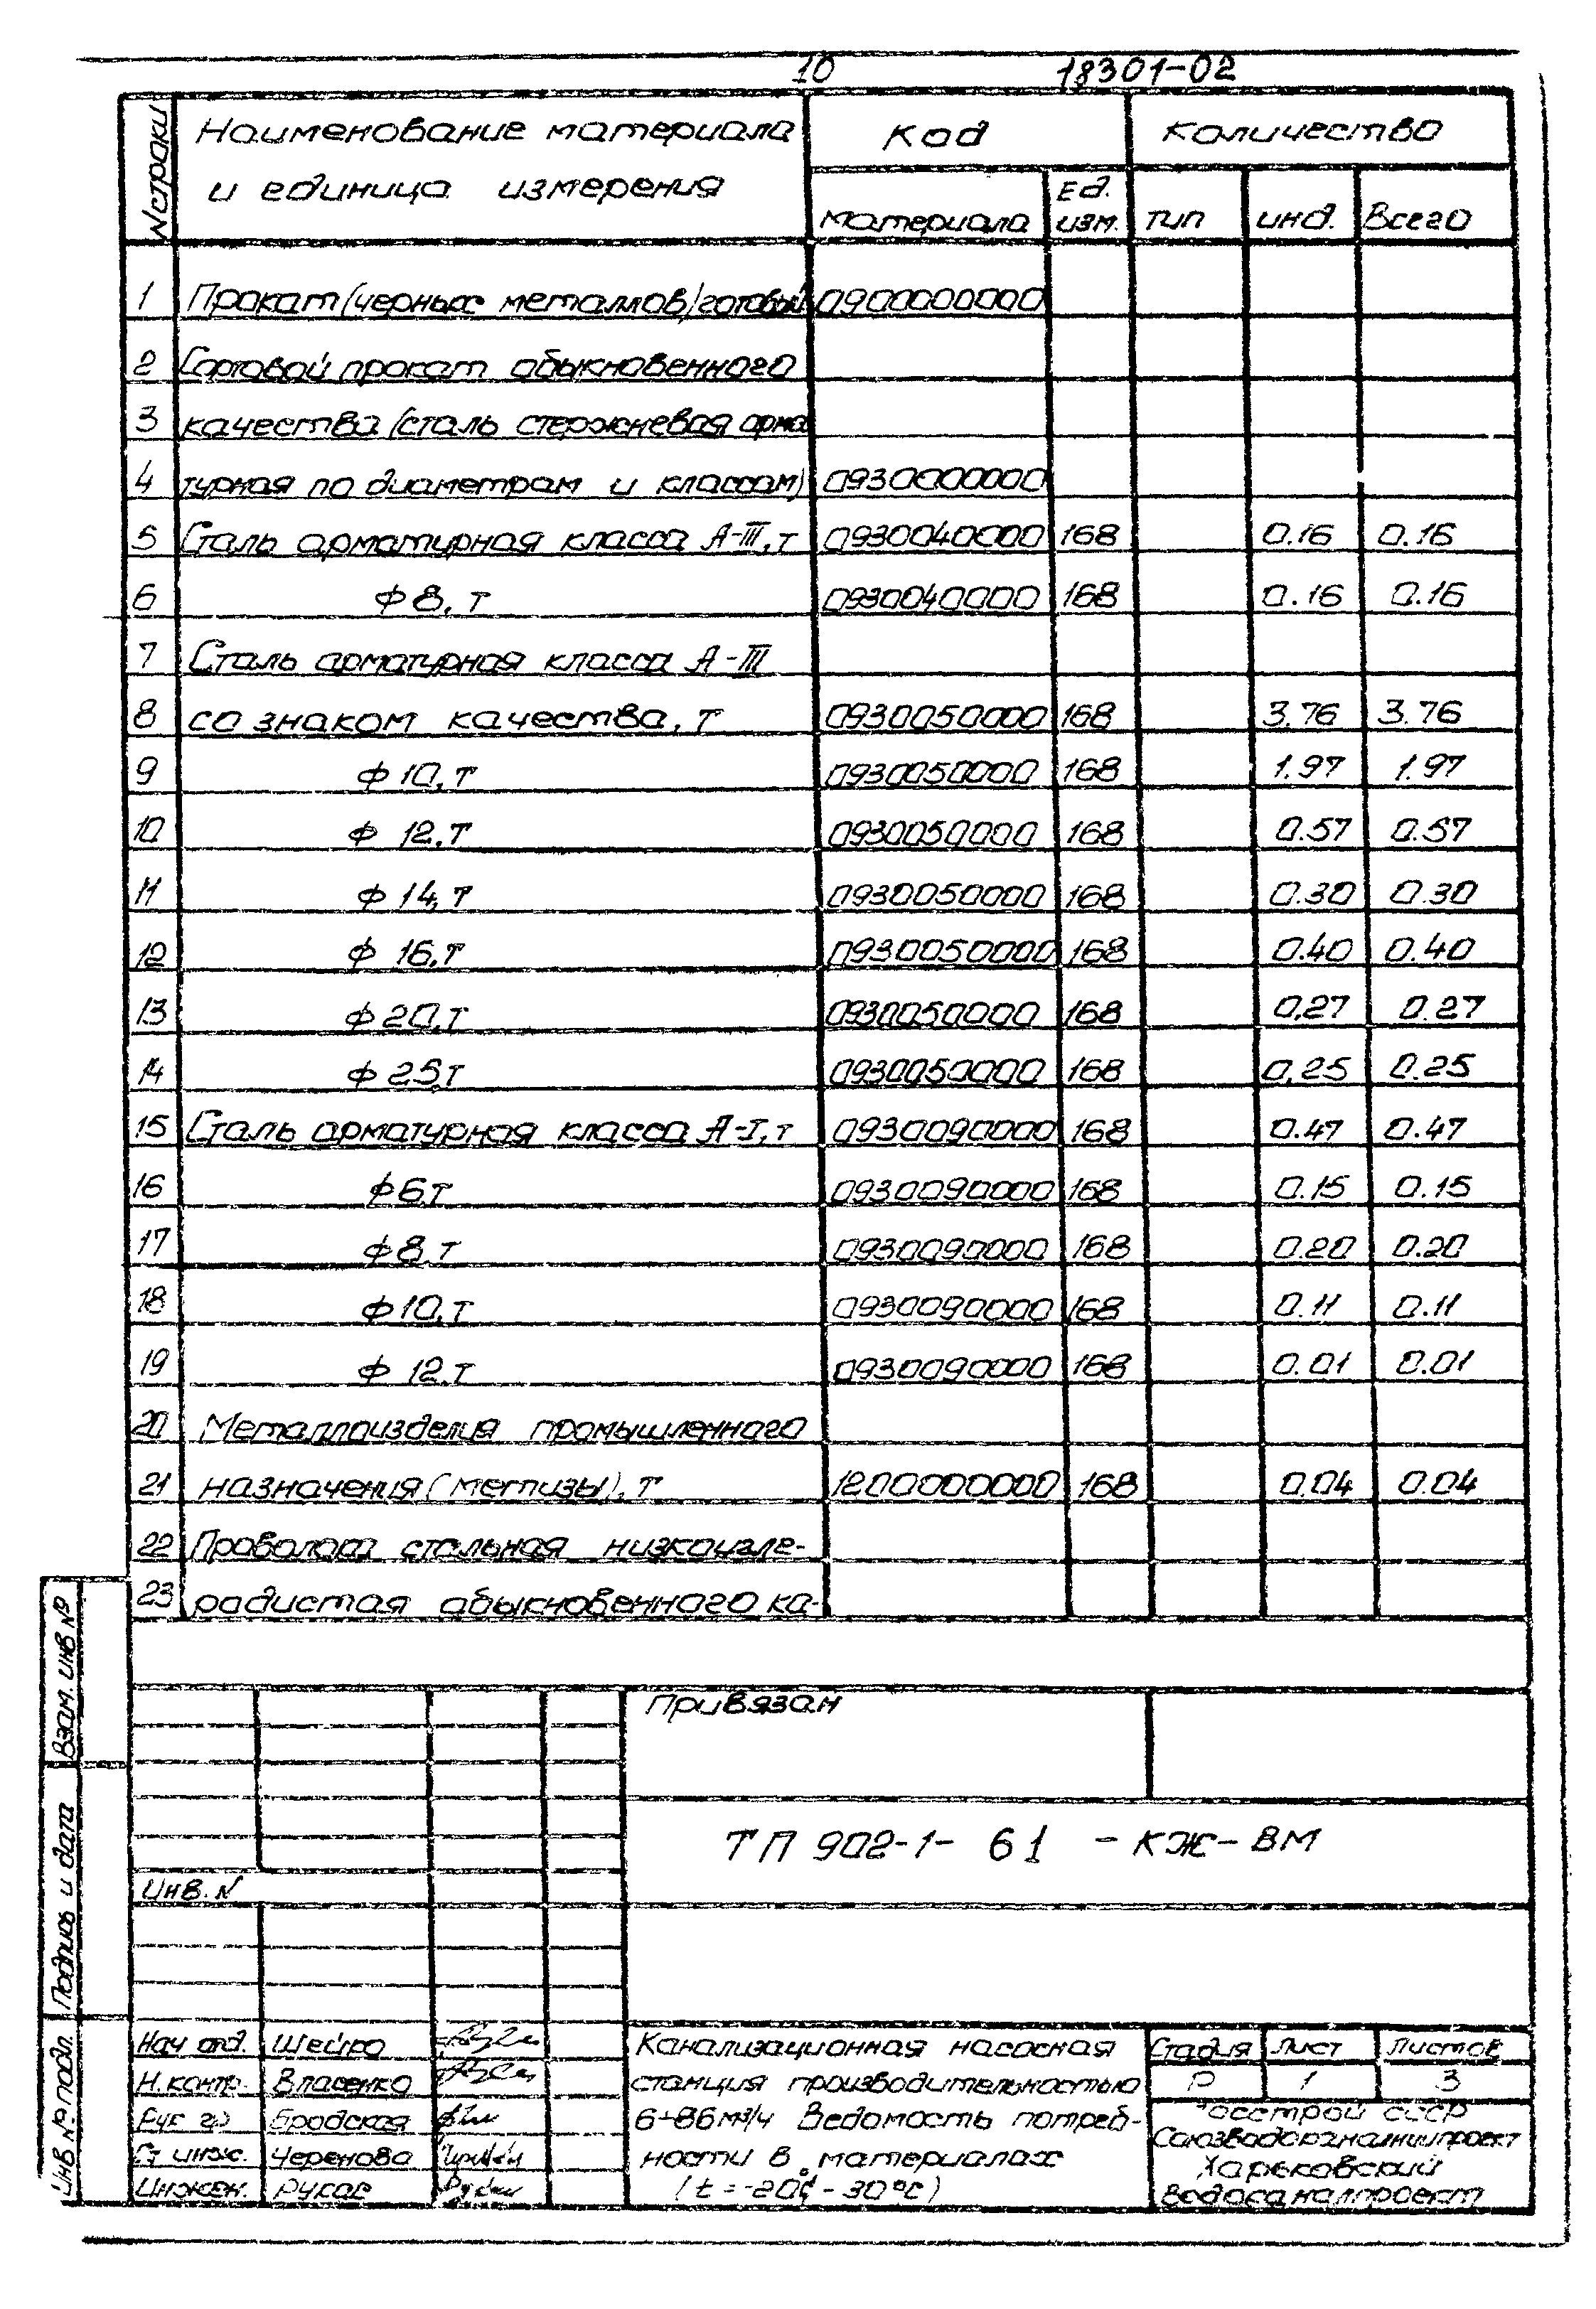 10 18301-02
N строки Наименование материала и единица измерения Код Количество
материала Ед. изм. тип инд. Всего
1 Прокат (черных металлов) готовый 0900000000
2 Сортовой прокат обыкновенного
3 качества (сталь стержневая арма
4 турная по диаметрам и классам) 0930000000
5 Сталь арматурная класса А-III, т 0930040000 168 0.16 0.16
6 Ф 8, т 0930040000 168 0.16 0.16
7 Сталь арматурная класса А-III
8 со знаком качества, т 0930050000 168 3,76 3.76
9 Ф 10, т 0930050000 168 1.97 1.97
10 Ф 12, т 0930050000 168 0.57 0.57
11 Ф 14, т 0930050000 168 0.30 0.30
12 Ф 16, т 0930050000 168 0.40 0.40
13 Ф 20, т 0930050000 168 0,27 0.27
14 Ф 25, т 0930050000 168 0,25 0.25
15 Сталь арматурная класса А-I, т 0930090000 168 0.47 0.47
16 Ф 6, т 0930090000 168 0.15 0.15
17 Ф 8, т 0930090000 168 0.20 0.20
18 Ф 10, т 0930090000 168 0.11 0.11
19 Ф 12, т 0930090000 168 0.01 0.01
20 Металлоизделия промышленного
21 назначения (метизы), т 1200000000 168 0,04 0.04
22 Проволока стальная низкоугле-
23 родистая обыкновенного ка-
Взам. инв №
Подпись и дата
Инв № подл.
Привязан
ТП 902-1- 61 - КЖ-ВМ
Инв. N
Нач отд. Шейро
Н. контр. Власенко
Рук гр Бродская
Ст инж. Черенова
Инжен. Рукас
Канализационная насосная
станция производительностью
6÷86 м³/ч Ведомость потреб-
ности в материалах
(t = -20°, -30°С)
Стадия Лист Листов
Р 1 3
Госстрой СССР
Союзводоканалниипроект
Харьковский
Водоканалпроект